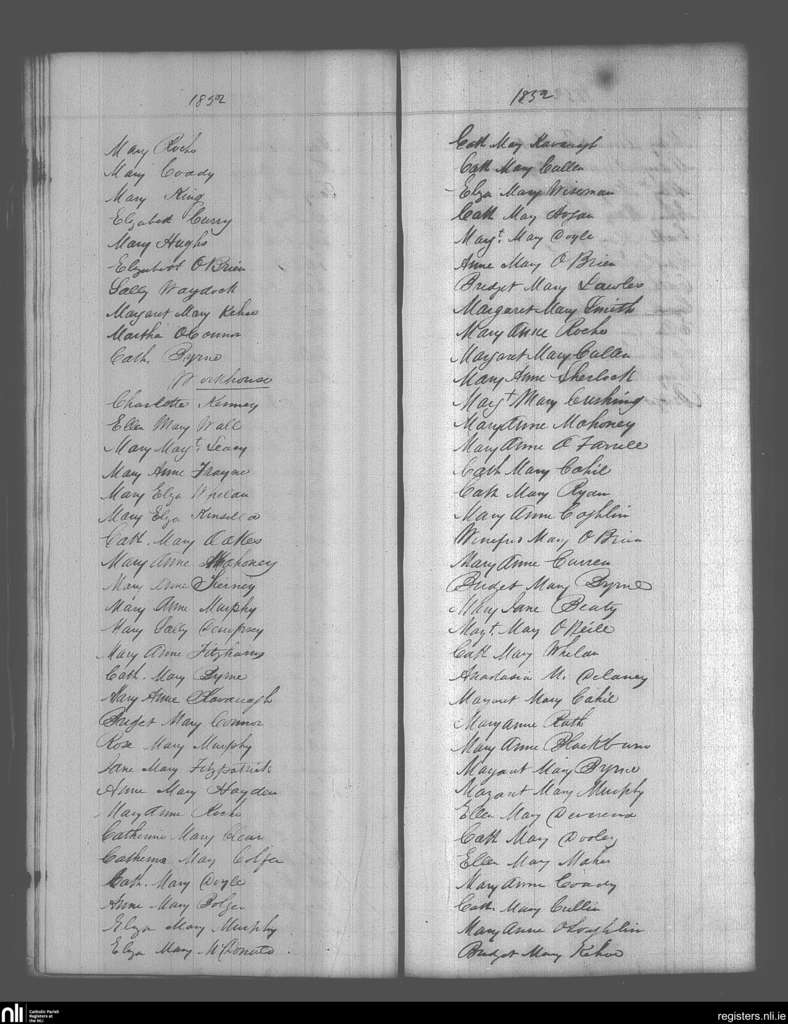 1852
Mary Roche
Mary Coady
Mary King
Elizabeth Curry
Mary Hughs
Elizabeth O Brien
Sally Waydock
Margaret Mary Kehoe
Martha O Connor
Cath. Byrne
Workhouse
Charlotte Kenney
Ellen Mary Wall
Mary Margt. Leary
Mary Anne Frayne
Mary Eliza Whelan
Mary Eliza Kinsella
Cath. Mary Oakes
Mary Anne Mahoney
Mary Anne Tierney
Mary Anne Murphy
Mary Sally Dempsey
Mary Anne Fitzharris
Cath. Mary Byrne
Mary Anne Kavanagh
Bridget Mary Connor
Rose Mary Murphy
Jane Mary Fitzpatrick
Anne Mary Hayden
Mary Anne Roche
Catherine Mary Clear
Catherine Mary Colfer
Cath. Mary Doyle
Anne Mary Bolger
Eliza Mary Murphy
Eliza Mary
1852
Cath Mary Kavanagh
Cath Mary Cullen
Eliza Mary Wiseman
Cath Mary Hogan
Margt. Mary Doyle
Anne Mary O Brien
Bridget Mary Lawler
Margaret Mary Smith
Mary Anne Roche
Margaret Mary Cullen
Mary Anne Sherlock
Margt Mary Cushing
Mary Anne Mahoney
Mary Anne O Farrell
Cath Mary Cahil
Cath Mary Ryan
Mary Anne Coghlin
Mary O Brien
Mary Anne Curren
Bridget Mary Byrne
Mary Jane Beaty
Margt. Mary O Neile
Cath Mary Whelan
Anastasia M. Delaney
Margaret Mary Cahil
Mary Anne Roth
Mary Anne Blackburn
Margaret Mary Byrne
Margaret Mary Murphy
Ellen Mary Devereux
Cath Mary Dooley
Ellen Mary Maher
Mary Anne Coady
Cath. Mary Cullin
Mary Anne O Loughlin
Bridget Mary Kehoe
nli Catholic Parish Registers at the NLI
registers.nli.ie